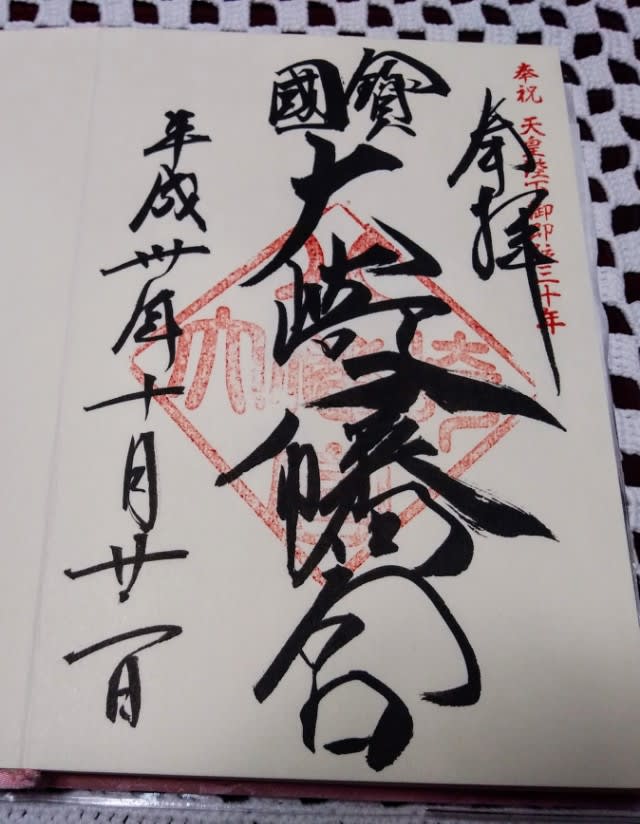 奉祝 天皇陛下御即位三十年
奉拝
國寶
大崎八幡宮
平成卅年十月廿一日